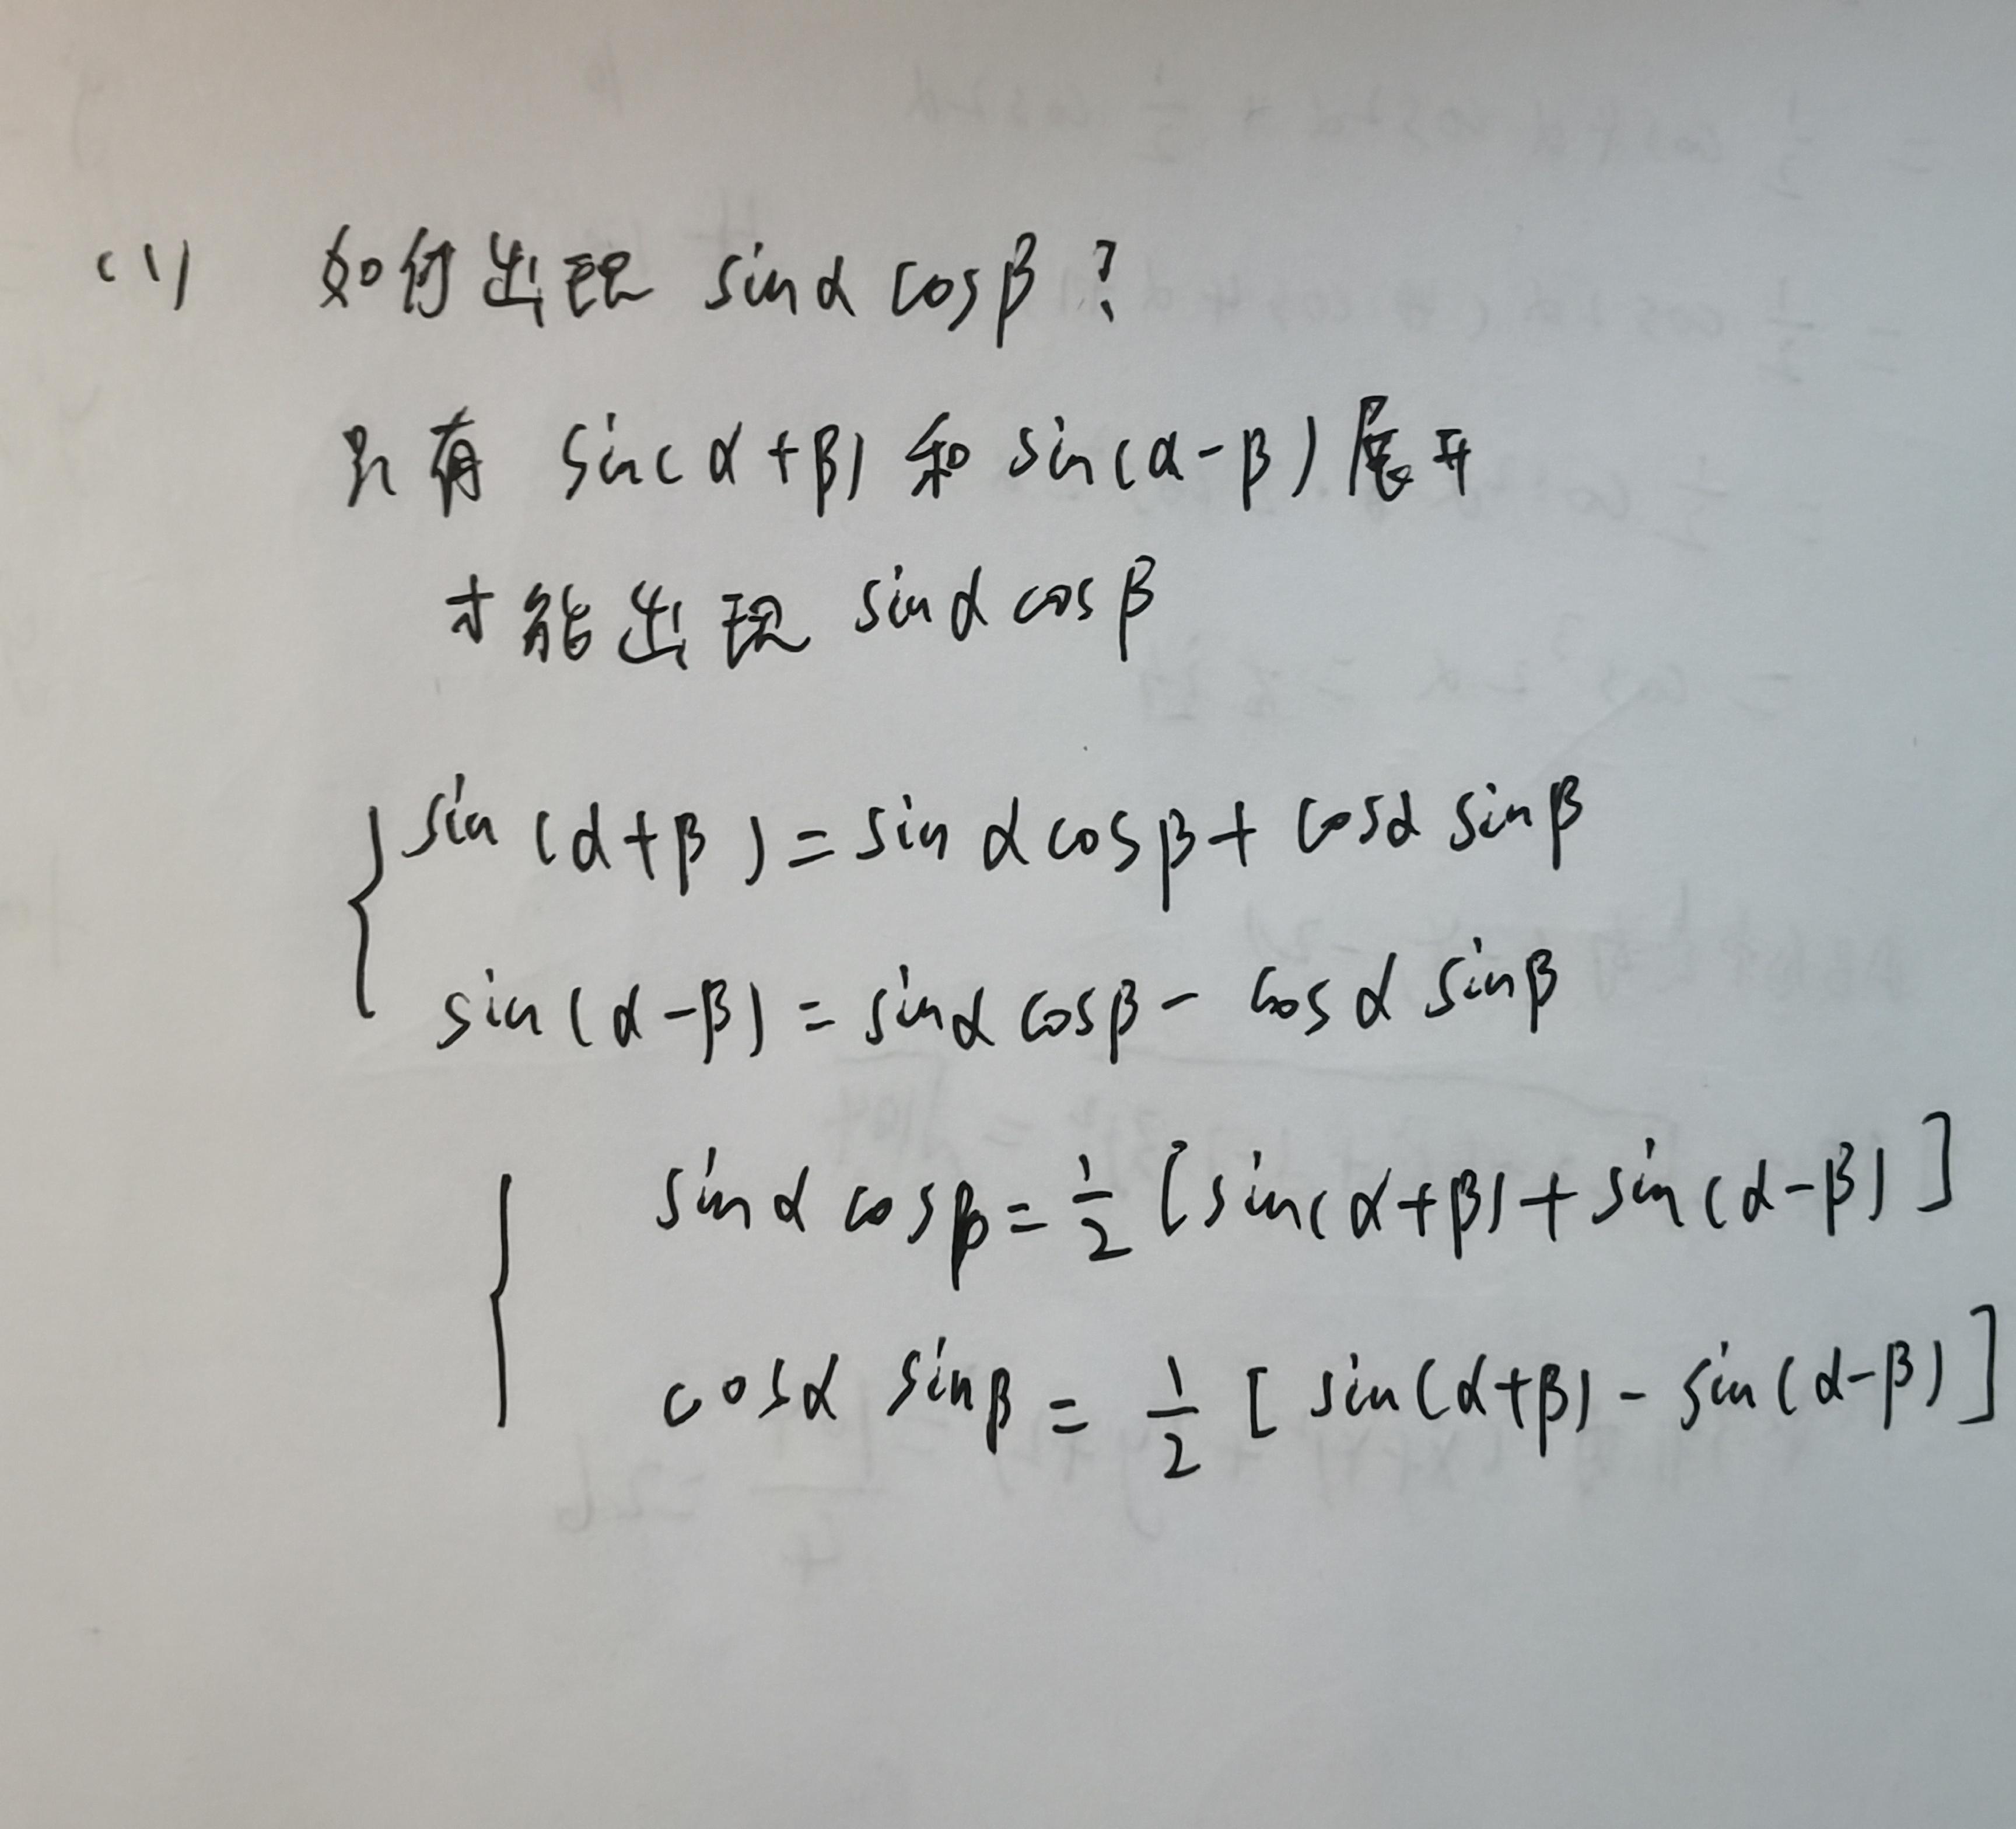 (1) 如何出现 sinα cosβ?
只有 sin(α+β) 和 sin(α-β) 展开
才能出现 sinα cosβ
sin(α+β) = sinα cosβ + cosα sinβ
sin(α-β) = sinα cosβ - cosα sinβ
sinα cosβ = 1/2 [sin(α+β) + sin(α-β)]
cosα sinβ = 1/2 [sin(α+β) - sin(α-β)]